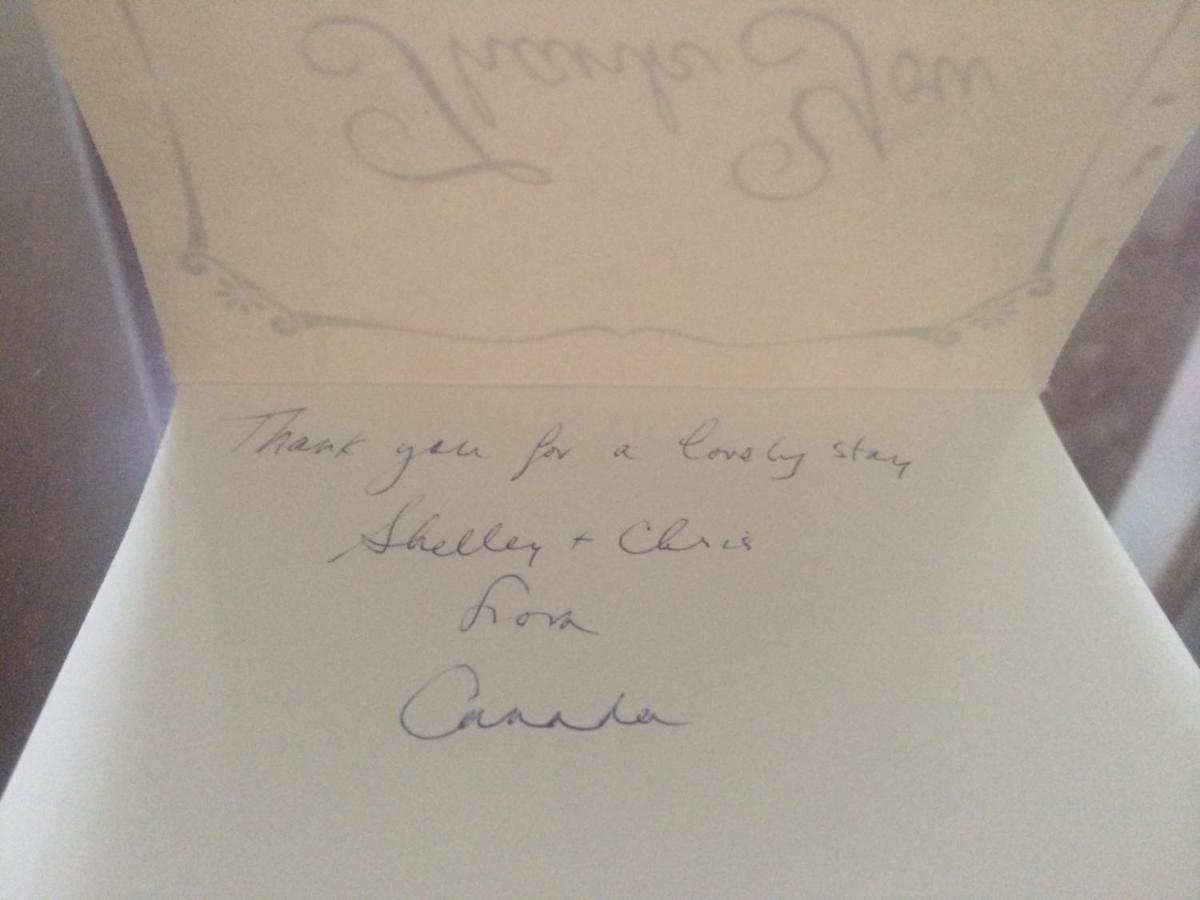 Thank You
Thank you for a lovely stay
Shelley + Chris
from
Canada